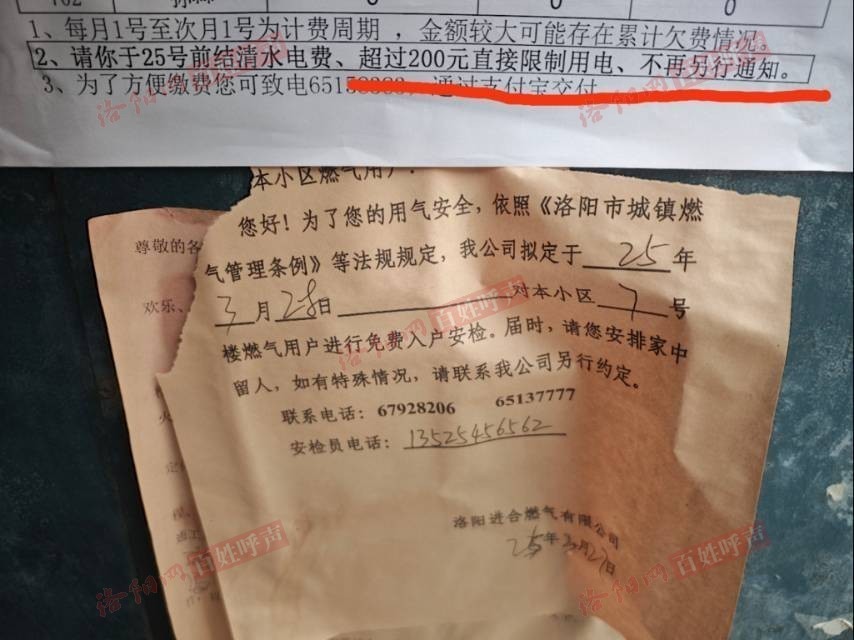 702
0
0
0
1、每月1号至次月1号为计费周期，金额较大可能存在累计欠费情况。
2、请你于25号前结清水电费、超过200元直接限制用电、不再另行通知。
3、为了方便缴费您可致电651 通过支付宝交付
本小区燃气用户：
您好！为了您的用气安全，依照《洛阳市城镇燃
气管理条例》等法规规定，我公司拟定于 25 年
3 月 28 日 对本小区 7 号
楼燃气用户进行免费入户安检。届时，请您安排家中
留人，如有特殊情况，请联系我公司另行约定。
联系电话：67928206 65137777
安检员电话：13525456562
洛阳进合燃气有限公司
25年3月27日
尊敬的各
欢乐、
洛阳网 百姓呼声
洛阳网 百姓呼声
洛阳网 百姓呼声
洛阳网 百姓呼声
洛阳网 百姓呼声